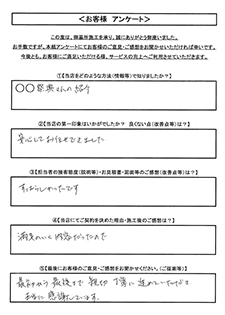 ＜お客様 アンケート＞
この度は、御墓所施工を承り、誠にありがとう御座いました。
お手数ですが、本紙アンケートにてお客様のご意見・ご感想をお聞かせいただければ幸いです。
今後とも、お客様にご満足いただける様、サービスの向上へご利用させていただきます。
【①当店をどのような方法（情報等）で知りましたか？】
〇〇 さんの紹介
【②当店の第一印象はいかがでしたか？ 良くない点（改善点等）は？】
安心してお任せできました
【③担当者の接客態度（説明等）・お見積書・図面等のご感想（改善点等）は？】
すばらしかったです
【④当店にてご契約を決めた理由・施工後のご感想は？】
満足のいく内容だったので
【⑤最後にお客様のご意見・ご感想をお聞かせください。（ご提案等）】
最初から最後まで 親切 丁寧に 進めていただき
本当に 感謝しています。